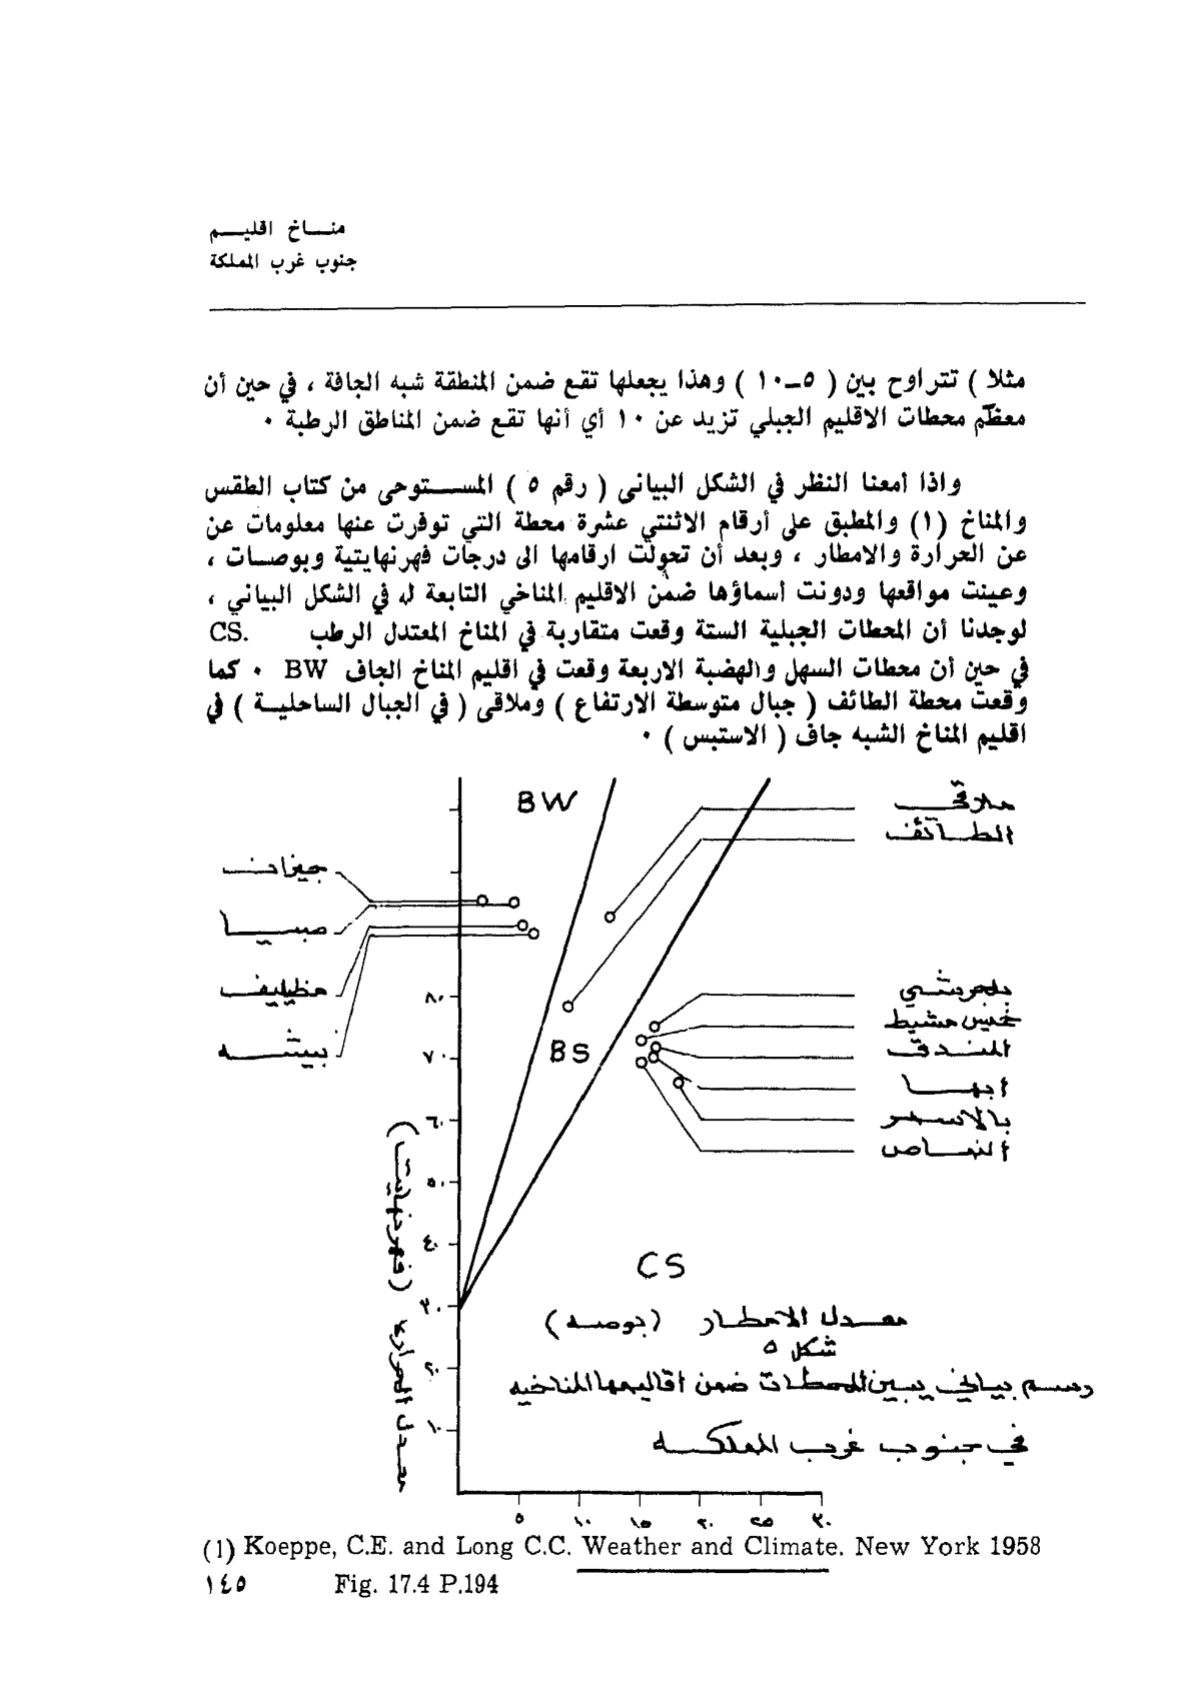 منـــاخ اقليـــم
جنوب غرب المملكة
مثلا ) تتراوح بين ( ٥ــ١٠ ) وهذا يجعلها تقع ضمن المنطقة شبه الجافة ، في حين أن
معظم محطات الاقليم الجبلي تزيد عن ١٠ أي أنها تقع ضمن المناطق الرطبة ٠
واذا أمعنا النظر في الشكل البياني ( رقم ٥ ) المســتوحى من كتاب الطقس
والمناخ (١) والمطبق على أرقام الاثنتي عشرة محطة التي توفرت عنها معلومات عن
عن الحرارة والامطار ، وبعد أن تحولت ارقامها الى درجات فهرنهايتية وبوصــات ،
وعينت مواقعها ودونت أسماؤها ضمن الاقليم المناخي التابعة له في الشكل البياني ،
لوجدنا أن المحطات الجبلية الستة وقعت متقاربة في المناخ المعتدل الرطب CS.
في حين أن محطات السهل والهضبة الاربعة وقعت في اقليم المناخ الجاف BW ٠ كما
وقعت محطة الطائف ( جبال متوسطة الارتفاع ) وملاقى ( في الجبال الساحليـة ) في
اقليم المناخ الشبه جاف ( الاستبس ) ٠
BW
ملاقي
الطائف
جيزان
صبيا
مظيليف
بيشه
بلجرشي
خميس مشيط
المندق
ابها
بالاسمر
النماص
BS
CS
٨٠
٧٠
٦٠
٥٠
٤٠
٣٠
٢٠
١٠
معدل الحرارة (فهرنهايت)
معدل الامطار (بوصه)
شكل ٥
رسم بياني يبين المحطات ضمن اقاليمها المناخيه
في جنوب غرب المملكه
٥ ١٠ ١٥ ٢٠ ٢٥ ٣٠
(1) Koeppe, C.E. and Long C.C. Weather and Climate. New York 1958
١٤٥ Fig. 17.4 P.194